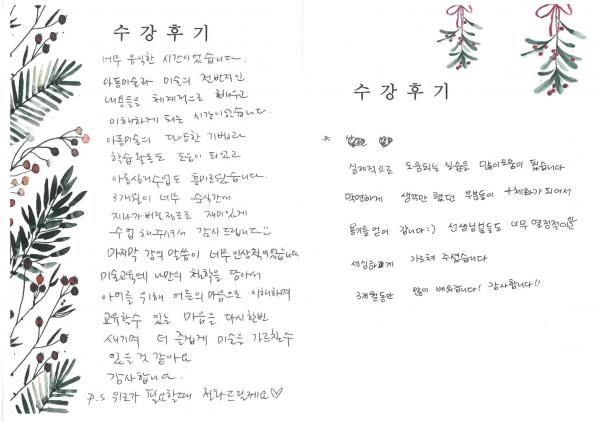 수강후기
너무 유익한 시간이었습니다.
아동미술과 미술의 전반적인
내용들을 체계적으로 배우고
이해하게 되는 시간이었습니다.
아동미술의 다양한 기법과
학습활동도 도움이 되었고
아동심리수업도 흥미로웠습니다.
3개월이 너무 순식간에
지나가버릴정도로 재미있게
수업 해주셔서 감사드립니다
마지막 강의 말씀이 너무 인상적이었습니다
미술교육에 나만의 철학을 담아서
아이를 위해 어른의 마음으로 이해하며
교육할수 있는 마음을 다시한번
새기며 더 즐겁게 미술을 가르칠수
있을것 같아요
감사합니다.
P.S 위로가 필요할때 전화드릴게요♡
수강후기
*
실제적으로 도움되는 실습을 많이 도움이 됐습니다
막연하게 생각만 했던 부분들이 구체화가 되어서
용기를 얻어 갑니다:) 선생님들도 너무 열정적이고
세심하게 가르쳐 주셨습니다
3개월동안 많이 배워갑니다! 감사합니다!!